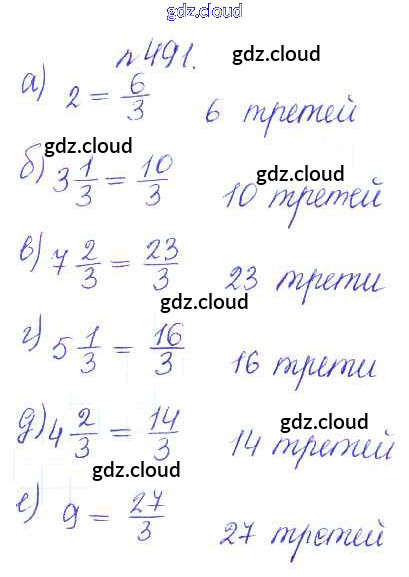 gdz.cloud
№ 491. gdz.cloud
а) 2 = 6/3 6 третей
gdz.cloud
б) 3 1/3 = 10/3 gdz.cloud 10 третей
в) 7 2/3 = 23/3 23 трети
gdz.cloud
г) 5 1/3 = 16/3 16 трети
д) 4 2/3 = 14/3 gdz.cloud 14 третей
gdz.cloud
е) 9 = 27/3 27 третей